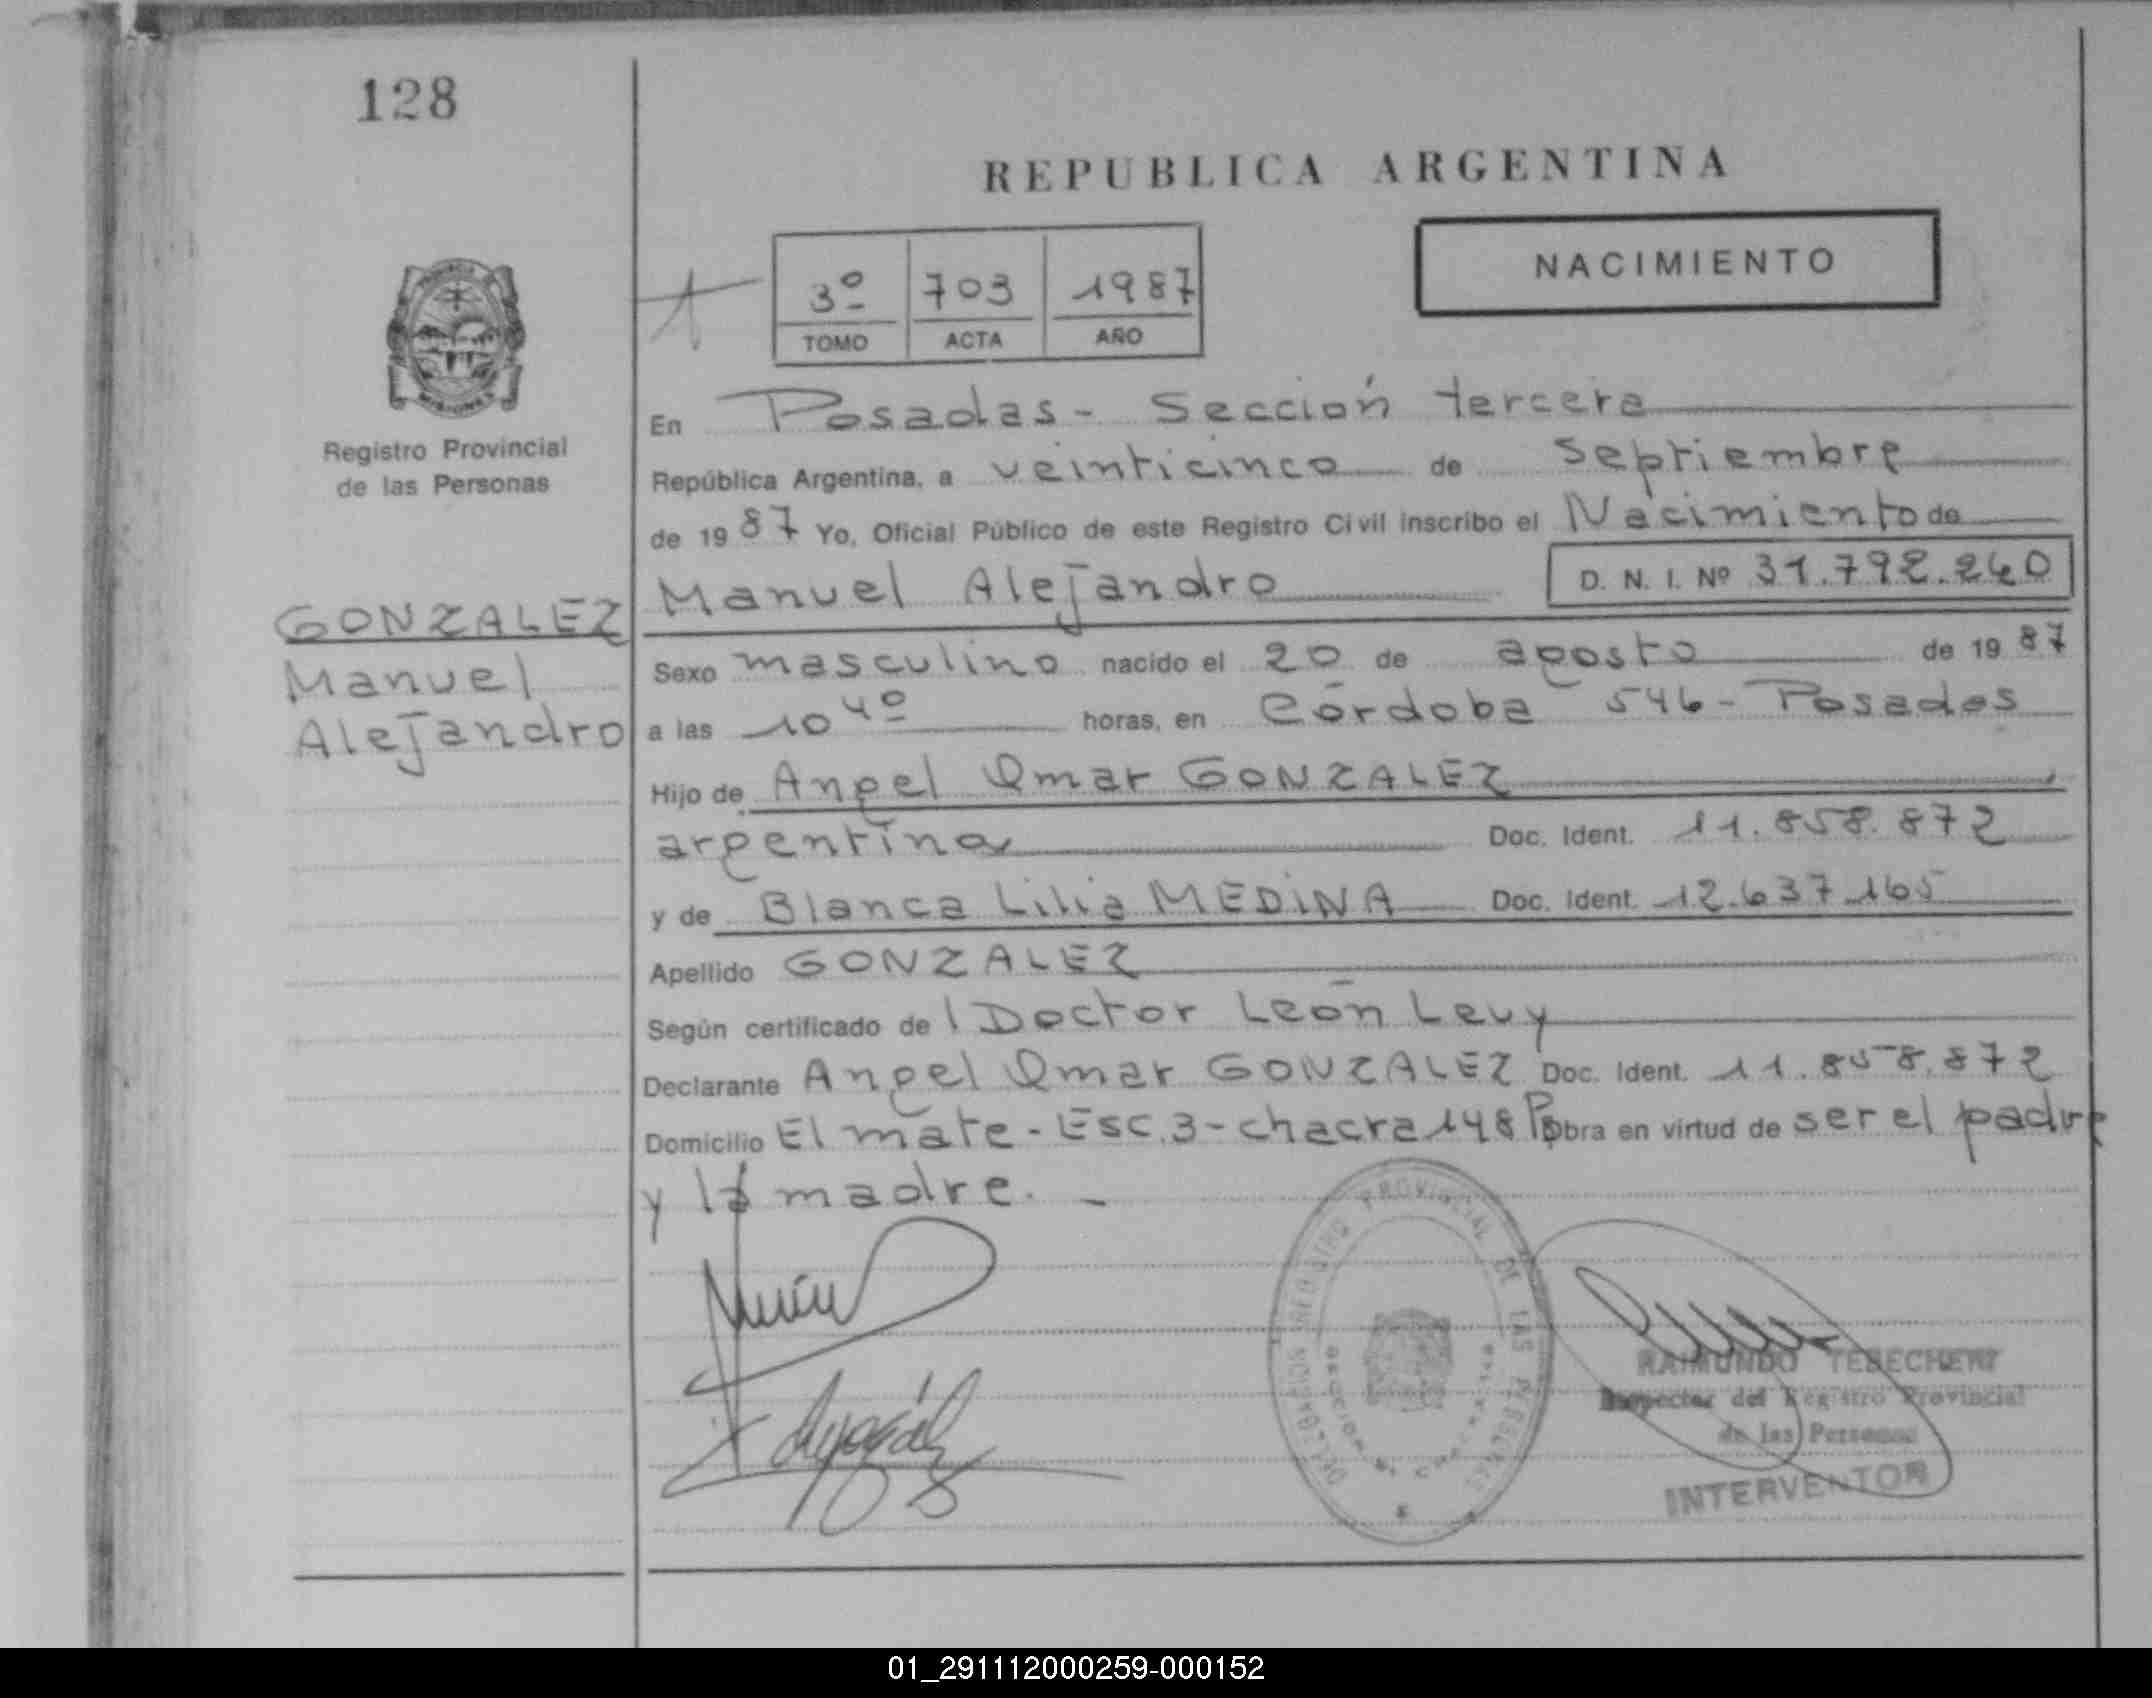 128
REPUBLICA ARGENTINA
NACIMIENTO
3º 703 1987
TOMO ACTA AÑO
MISIONES
Registro Provincial
de las Personas
GONZALEZ
Manuel
Alejandro
En Posadas - Sección tercera
República Argentina, a veinticinco de septiembre
de 1987 Yo, Oficial Público de este Registro Civil inscribo el Nacimiento de
Manuel Alejandro D. N. I. Nº 31.792.240
Sexo masculino nacido el 20 de agosto de 1987
a las 10 40 horas, en Córdoba 546 - Posadas
Hijo de Angel Omar GONZALEZ
argentina Doc. Ident. 11.858.872
y de Blanca Lilia MEDINA Doc. Ident. 12.637.165
Apellido GONZALEZ
Según certificado del Doctor León Levy
Declarante Angel Omar GONZALEZ Doc. Ident. 11.858.872
Domicilio El mate - Esc. 3 - chacra 148 Ps obra en virtud de ser el padre
y la madre. -
DELEGACION REGISTRO PROVINCIAL DE LAS PERSONAS
RAIMUNDO TEBECHERY
Inspector del Registro Provincial
de las Personas
INTERVENTOR
01_291112000259-000152